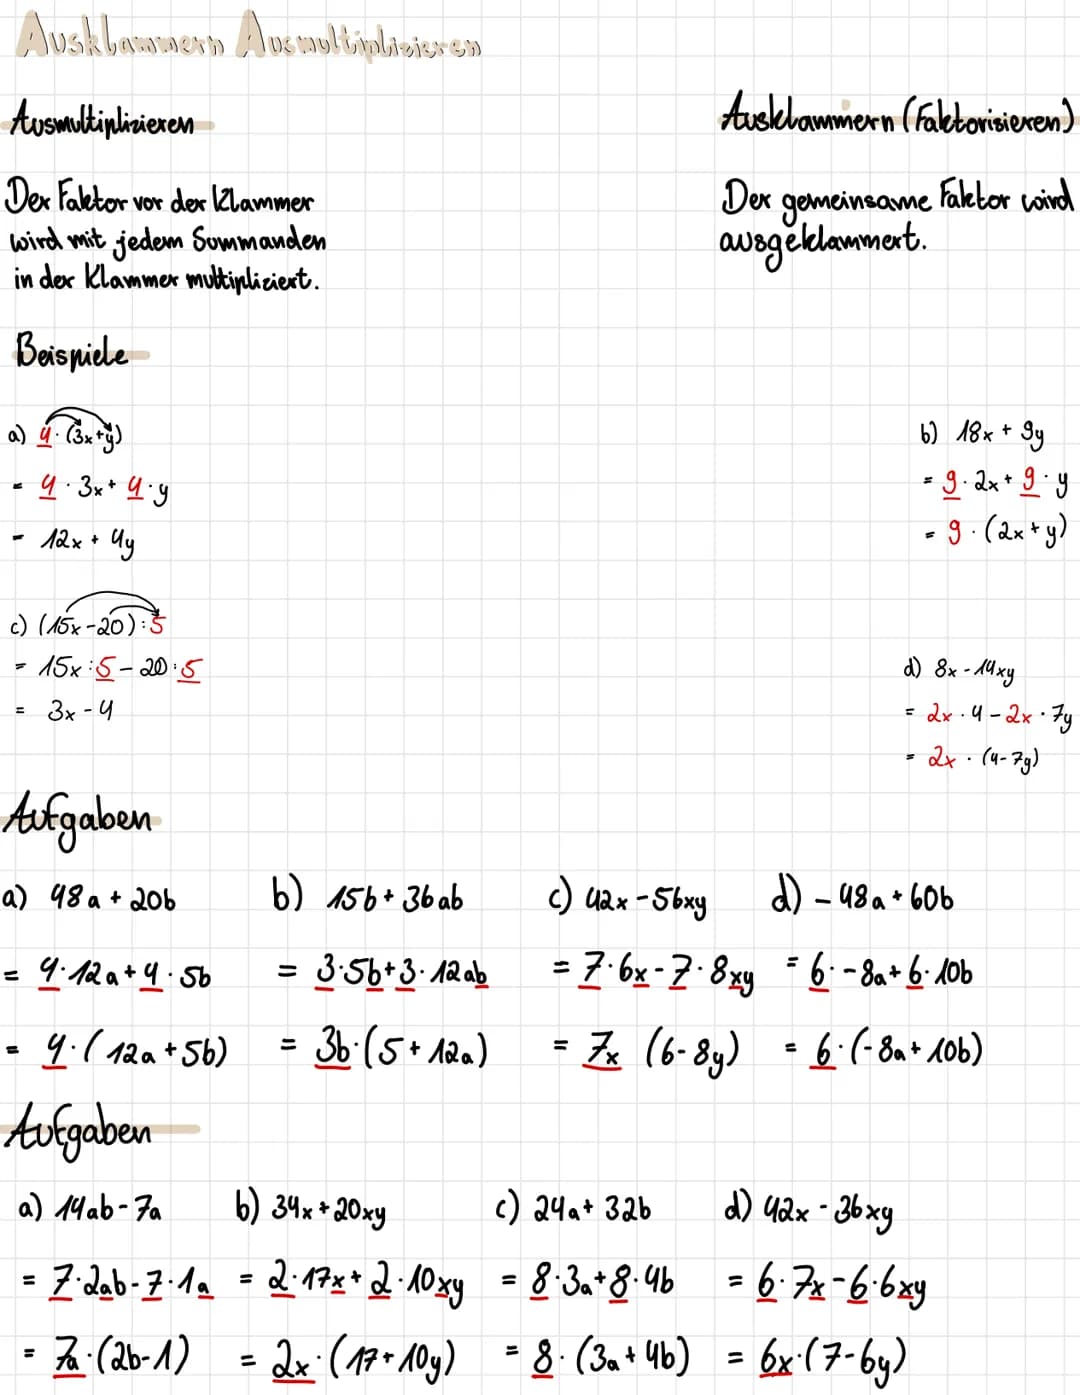 Ausklammern Ausmultiplizieren
Ausmultiplizieren
Der Faktor vor der Klammer
wird mit jedem Summanden
in der Klammer multipliziert.
Ausklammern (Faktorisieren)
Der gemeinsame Faktor wird
ausgeklammert.
Beispiele
a) 4 · (3x+y)
= 4 · 3x + 4 · y
= 12x + 4y
b) 18x + 9y
= 9 · 2x + 9 · y
= 9 · (2x + y)
c) (15x - 20) : 5
= 15x : 5 - 20 : 5
= 3x - 4
d) 8x - 14xy
= 2x · 4 - 2x · 7y
= 2x · (4 - 7y)
Aufgaben
a) 48a + 20b
= 4 · 12a + 4 · 5b
= 4 · (12a + 5b)
b) 15b + 36ab
= 3 · 5b + 3 · 12ab
= 3b · (5 + 12a)
c) 42x - 56xy
= 7 · 6x - 7 · 8xy
= 7x (6 - 8y)
d) - 48a + 60b
= 6 · - 8a + 6 · 10b
= 6 · (- 8a + 10b)
Aufgaben
a) 14ab - 7a
= 7 · 2ab - 7 · 1a
= 7a · (2b - 1)
b) 34x + 20xy
= 2 · 17x + 2 · 10xy
= 2x · (17 + 10y)
c) 24a + 32b
= 8 · 3a + 8 · 4b
= 8 · (3a + 4b)
d) 42x - 36xy
= 6 · 7x - 6 · 6xy
= 6x · (7 - 6y)